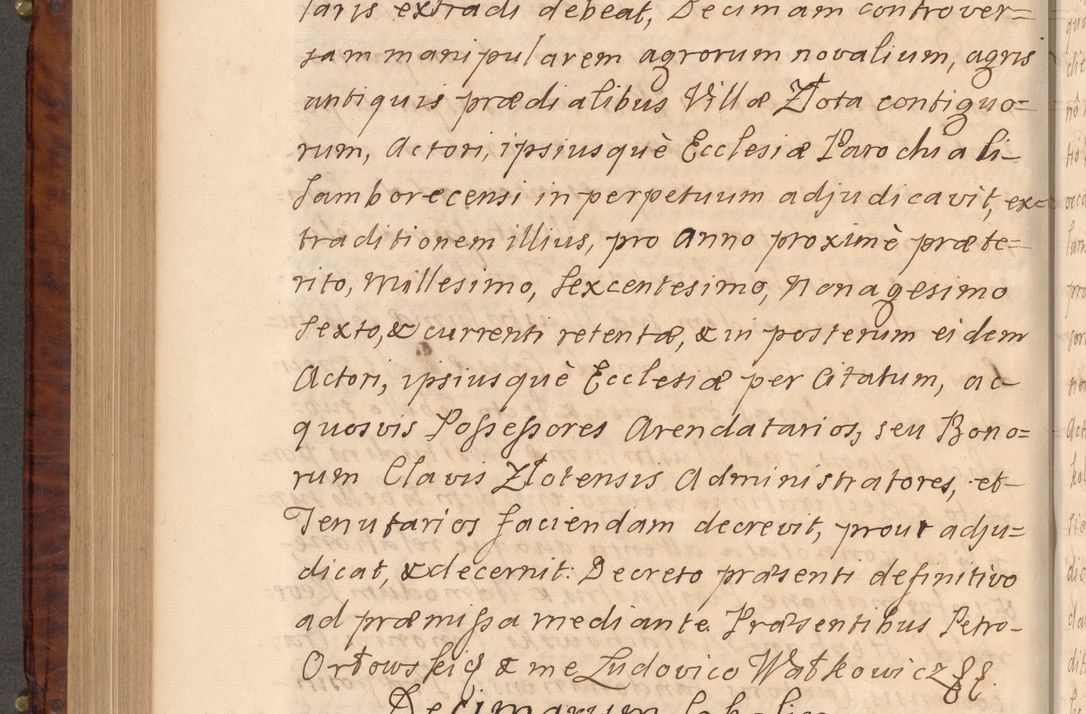 laris extradi debeat, Decimam controver=
sam manipularem agrorum novalium, agris
antiquis prædialibus Villæ Złota contiguo=
rum, Actori, ipsiusquè Ecclesiæ Parochiali
Samborecensi in perpetuum adjudicavit, ex=
traditionem illius, pro Anno proximè præte=
rito, Millesimo, Sexcentesimo, Nonagesimo
Sexto, & currenti retentæ, & in posterum eidem
Actori, ipsiusquè Ecclesiæ per Citatum, ac
quosvis Possessores Arendatarios, seu Bono=
rum Clavis Złotensis Administratores, et
Tenutarios faciendam decrevit, prout adju=
dicat, & decernit: Decreto præsenti definitivo
ad præmissa mediante. Præsentibus Petro
Orłowski & me Ludovico Wałkowicz
Decimarum